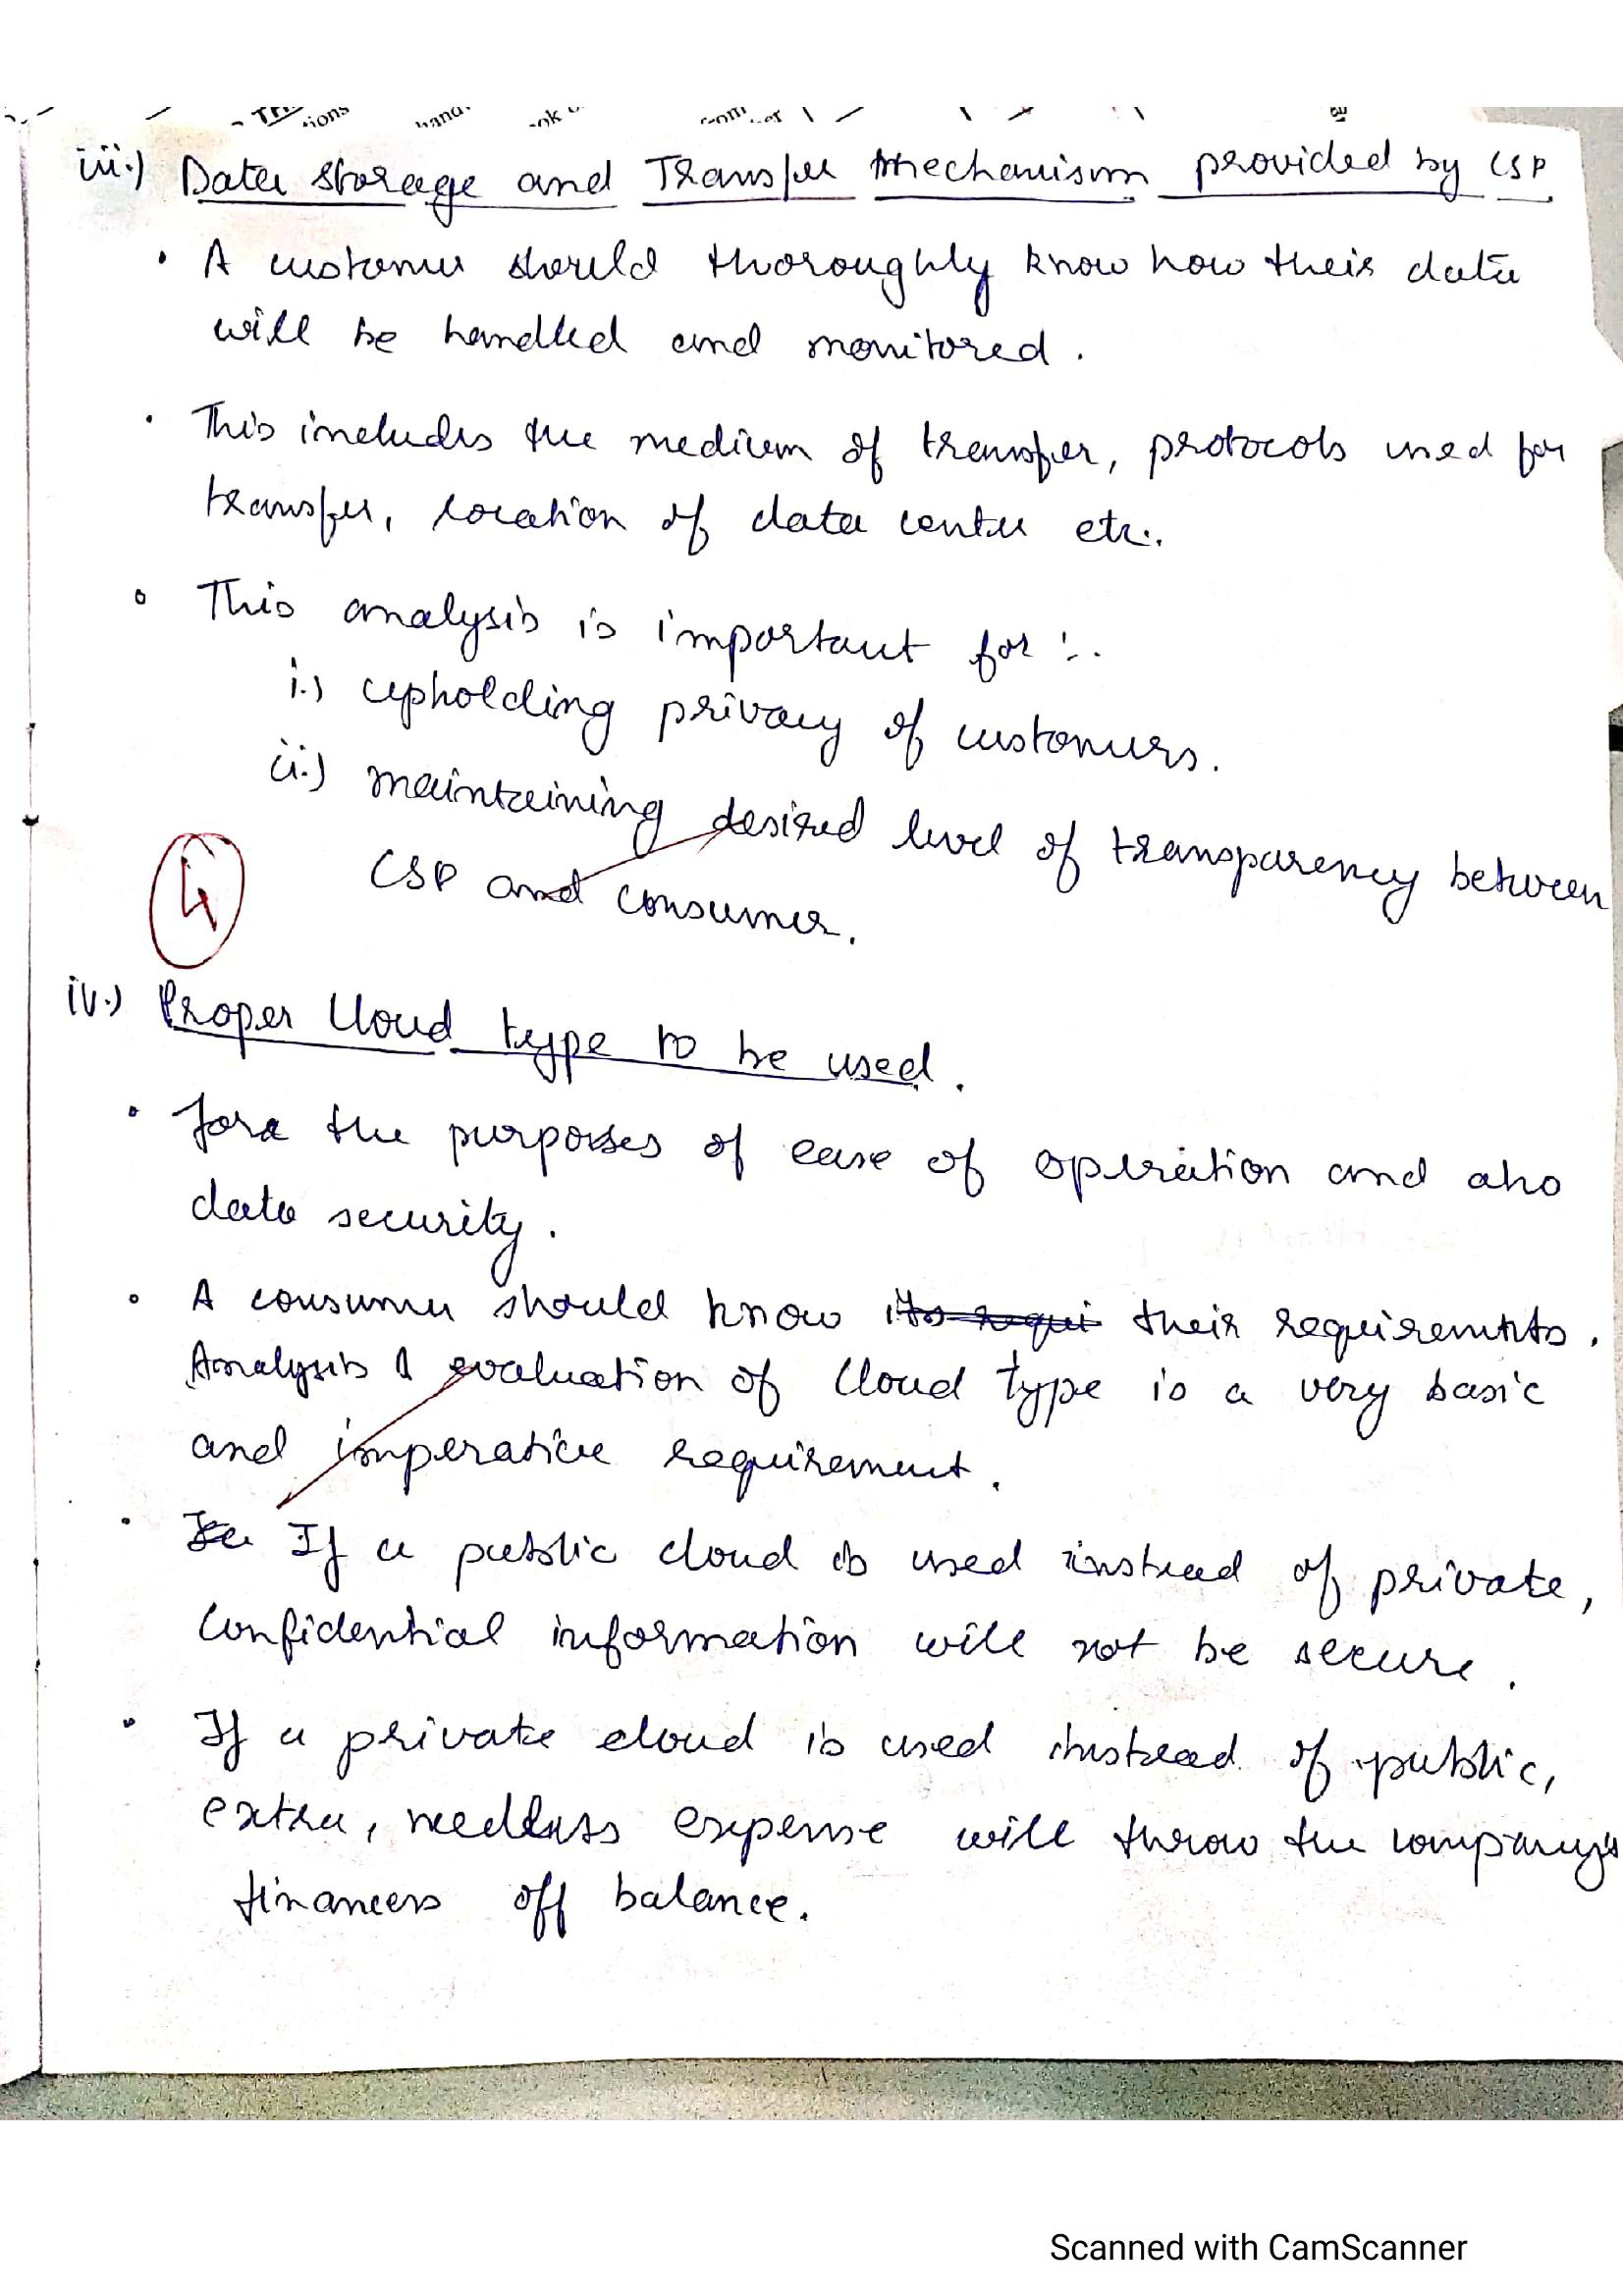 ions
hand
iii.) Data storage and Transfer Mechanism provided by CSP
• A customer should thoroughly know how their data
will be handled and monitored.
• This includes the medium of transfer, protocols used for
transfer, location of data center etc..
• This analysis is important for :.
i.) upholding privacy of customers.
ii.) maintaining desired level of transparency between
CSP and consumer.
4
iv.) Proper Cloud type to be used.
• For the purposes of ease of operation and also
data security.
• A consumer should know its requi their requiremnts.
Analysis & evaluation of Cloud type is a very basic
and imperative requirement.
• If a public cloud is used instead of private,
Confidential information will not be secure.
• If a private cloud is used instead of public,
extra, needless expense will throw the company's
finances off balance.
Scanned with CamScanner